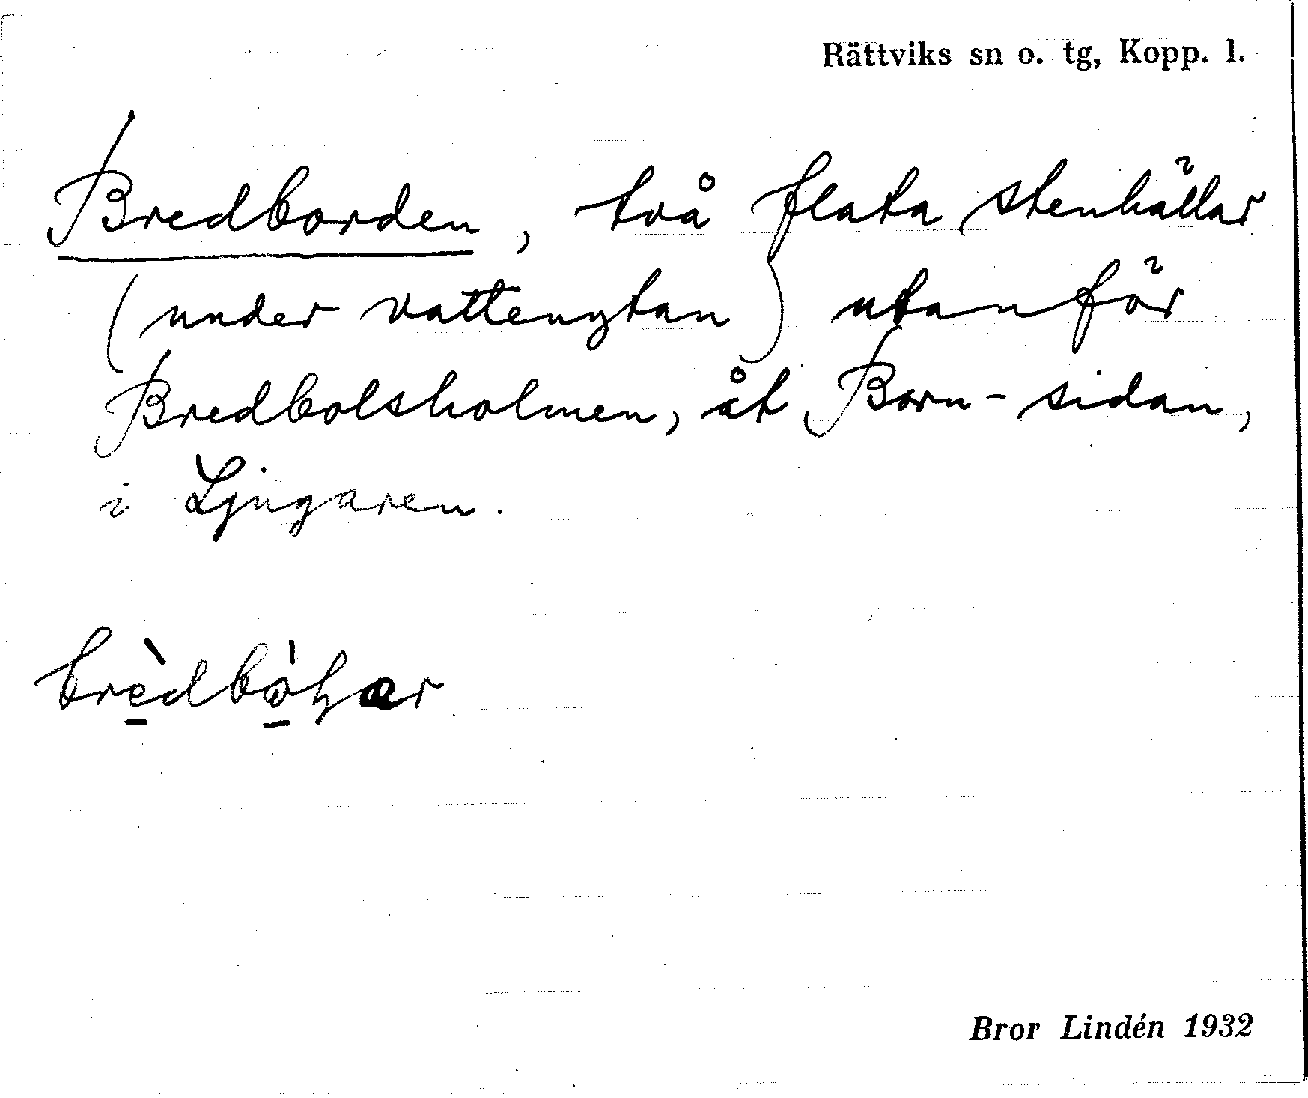 Rättviks sn o. tg, Kopp. l.
Bredborden, två flata stenhällar
(under vattenytan) utanför
Bredbolsholmen, åt Born-sidan,
i Ljugaren.
Bror Lindén 1932